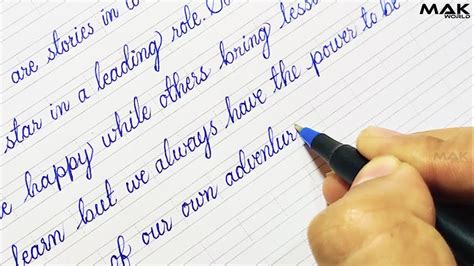 MAK
WORLD
are stories in
star in a leading role.
happy while others bring
learn but we always have the power to be
of our own adventur
MAK
WORLD